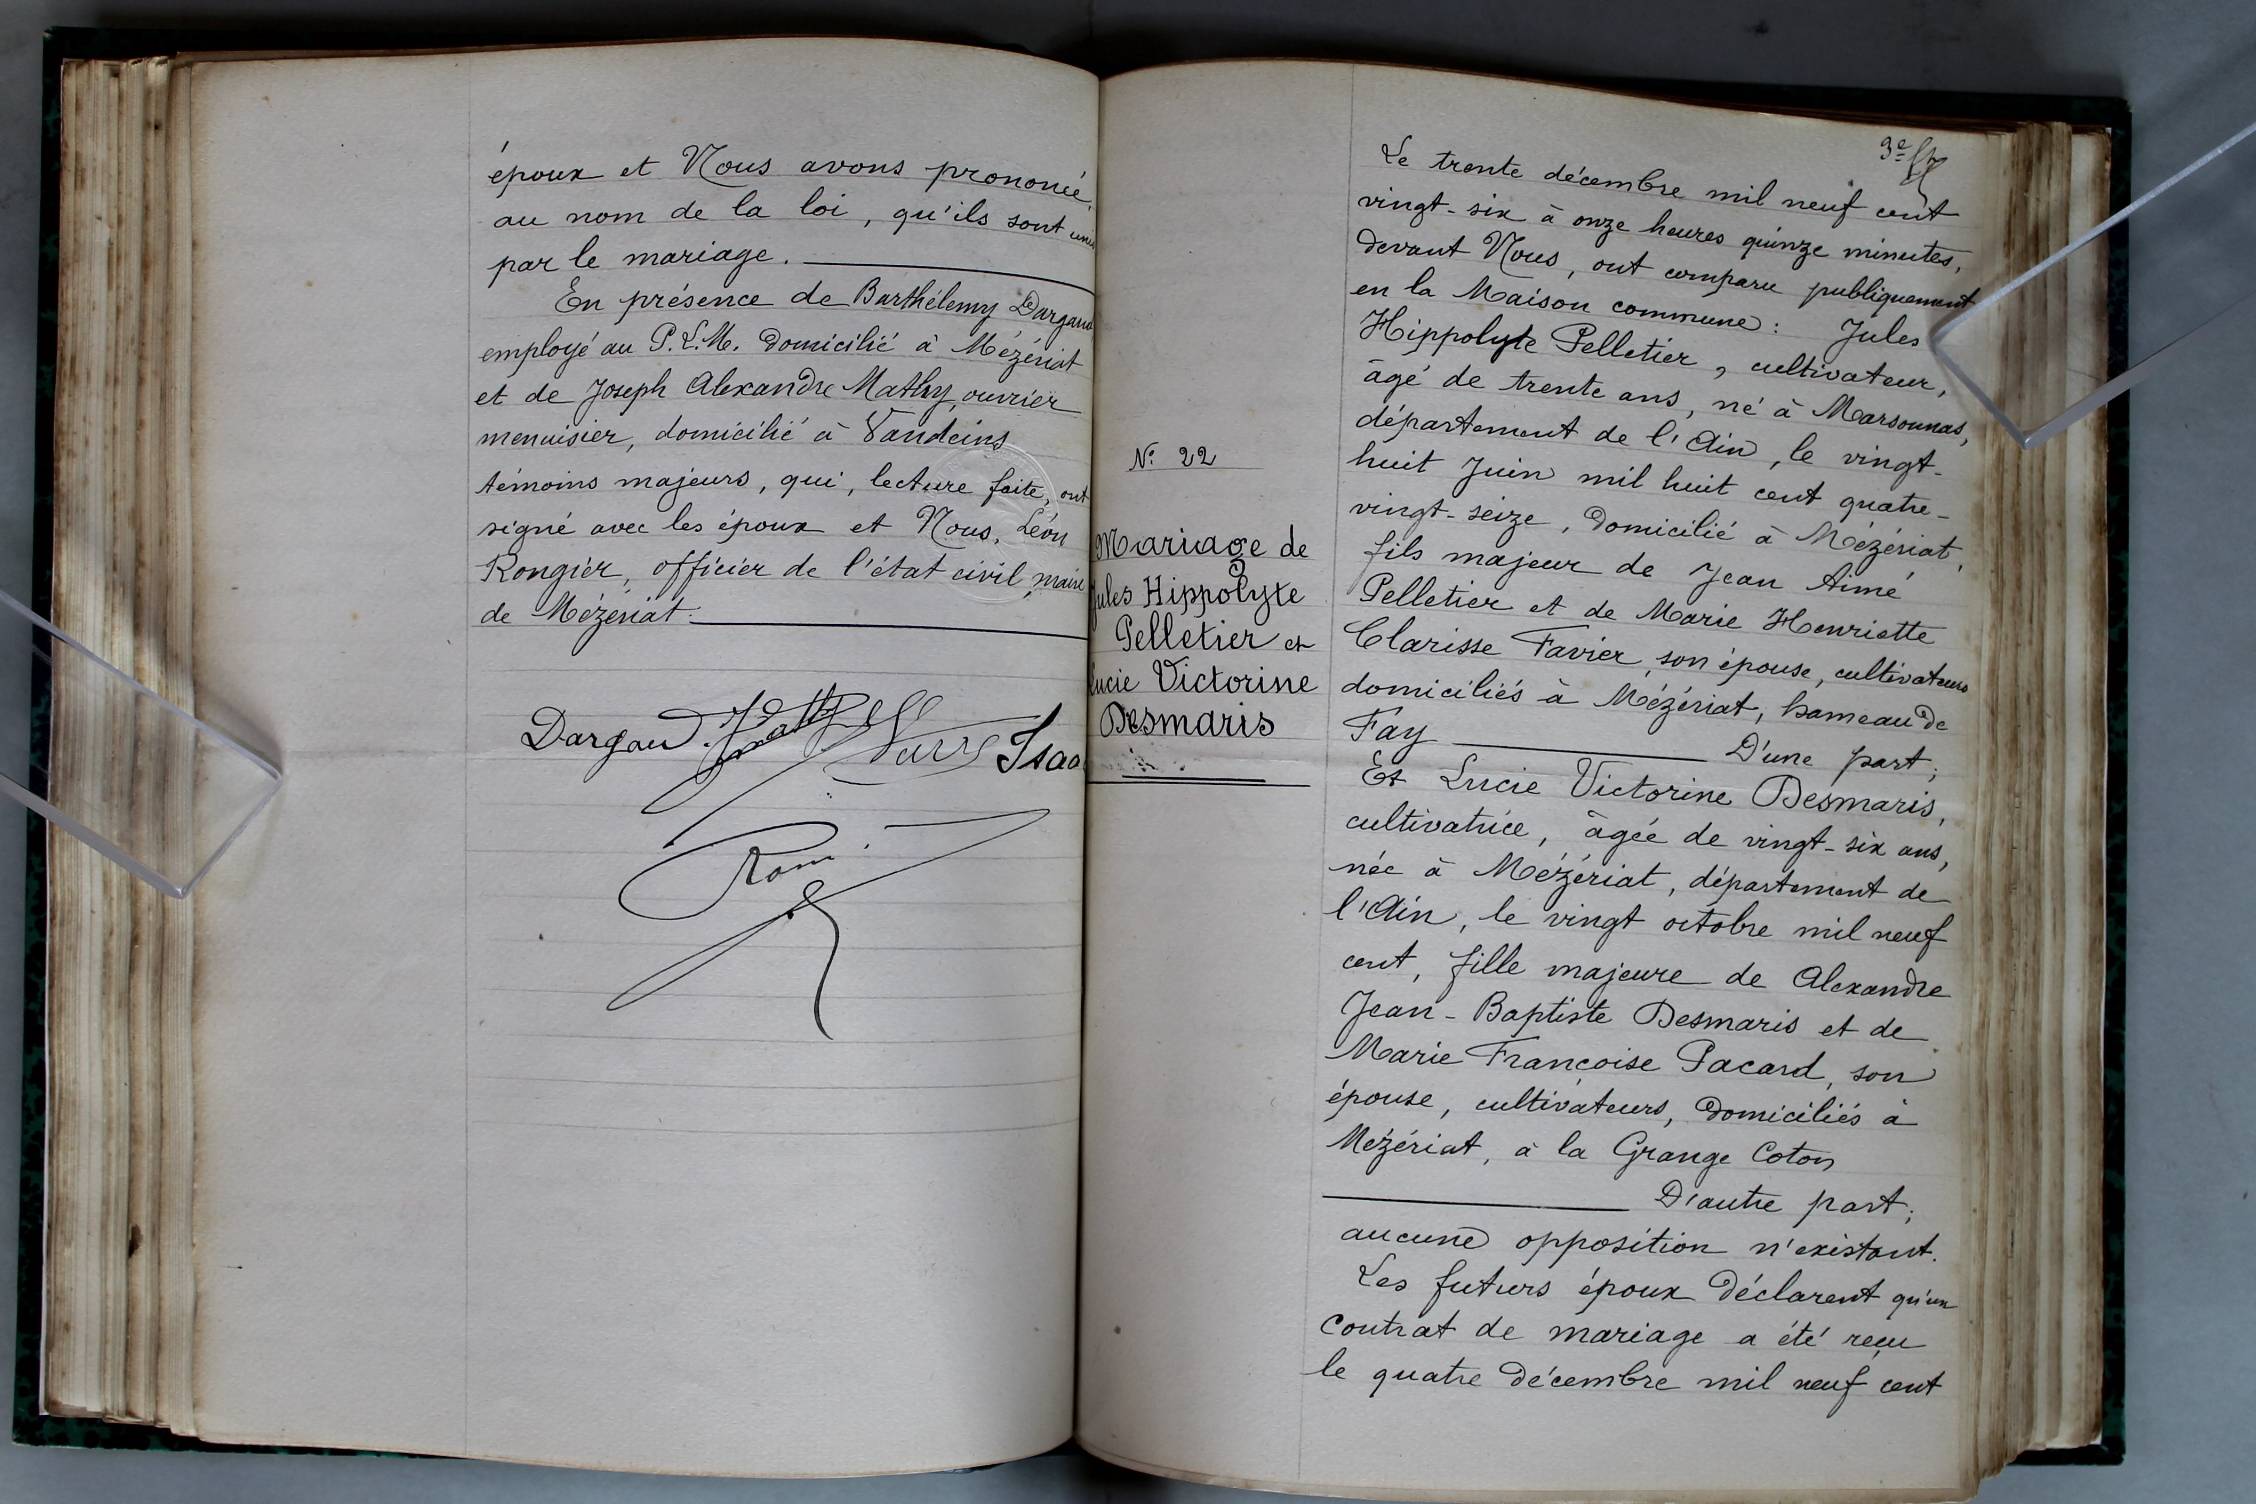 époux et Nous avons prononcé,
au nom de la loi, qu'ils sont unis
par le mariage.
En présence de Barthélemy Dargaud
employé au P.L.M. domicilié à Mézériat
et de Joseph Alexandre Mathy, ouvrier
menuisier, domicilié à Vandeins
témoins majeurs, qui, lecture faite, ont
signé avec les époux et Nous, Léon
Rongier, officier de l'état civil, maire
de Mézériat.
Dargaud
Isaa
3e
N° 22
Mariage de
Jules Hippolyte
Pelletier et
Lucie Victorine
Desmaris
Le trente décembre mil neuf cent
vingt-six à onze heures quinze minutes,
devant Nous, ont comparu publiquement
en la Maison commune : Jules
Hippolyte Pelletier, cultivateur,
âgé de trente ans, né à Marsonnas,
département de l'Ain, le vingt-
huit Juin mil huit cent quatre-
vingt-seize, domicilié à Mézériat,
fils majeur de Jean Aimé
Pelletier et de Marie Henriette
Clarisse Favier, son épouse, cultivateurs
domiciliés à Mézériat, hameau de
Fay D'une part;
Et Lucie Victorine Desmaris,
cultivatrice, âgée de vingt-six ans,
née à Mézériat, département de
l'Ain, le vingt octobre mil neuf
cent, fille majeure de Alexandre
Jean-Baptiste Desmaris et de
Marie Françoise Pacard, son
épouse, cultivateurs, domiciliés à
Mézériat, à la Grange Coton
D'autre part;
aucune opposition n'existant.
Les futurs époux déclarent qu'un
contrat de mariage a été reçu
le quatre décembre mil neuf cent